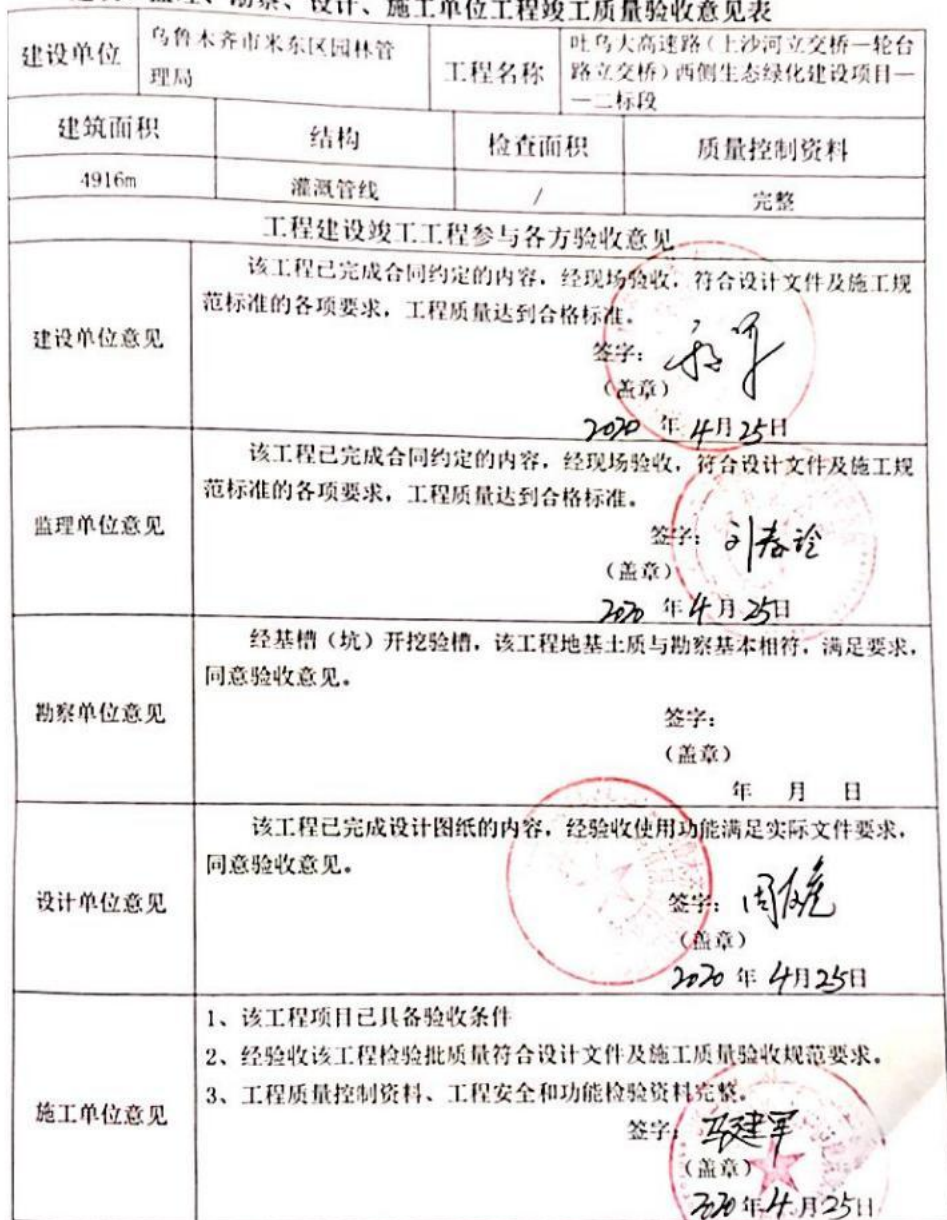 监理、勘察、设计、施工单位工程竣工质量验收意见表
建设单位
乌鲁木齐市米东区园林管
理局
工程名称
吐乌大高速路(上沙河立交桥—轮台
路立交桥)西侧生态绿化建设项目—
—二标段
建筑面积 结构 检查面积 质量控制资料
4916m 灌溉管线 / 完整
工程建设竣工工程参与各方验收意见
建设单位意见
该工程已完成合同约定的内容,经现场验收,符合设计文件及施工规
范标准的各项要求,工程质量达到合格标准。
签字:
(盖章)
2020 年 4月25日
监理单位意见
该工程已完成合同约定的内容,经现场验收,符合设计文件及施工规
范标准的各项要求,工程质量达到合格标准。
签字: 刘春玲
(盖章)
2020 年 4月 25日
勘察单位意见
经基槽(坑)开挖验槽,该工程地基土质与勘察基本相符,满足要求,
同意验收意见。
签字:
(盖章)
年 月 日
设计单位意见
该工程已完成设计图纸的内容,经验收使用功能满足实际文件要求,
同意验收意见。
签字:
(盖章)
2020 年 4月25日
施工单位意见
1、该工程项目已具备验收条件
2、经验收该工程检验批质量符合设计文件及施工质量验收规范要求。
3、工程质量控制资料、工程安全和功能检验资料完整。
签字: 马建军
(盖章)
2020年4月25日